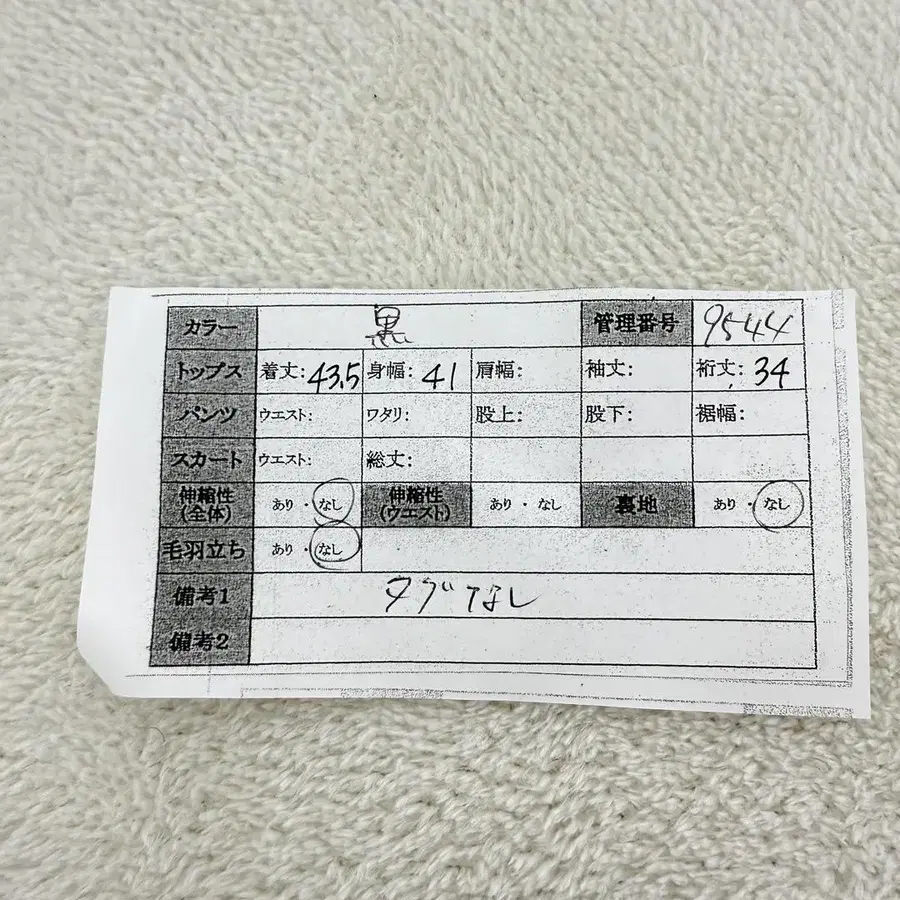 カラー 黒 管理番号 9544
トップス 着丈: 43.5 身幅: 41 肩幅: 袖丈: 裄丈: 34
パンツ ウエスト: ワタリ: 股上: 股下: 裾幅:
スカート ウエスト: 総丈:
伸縮性 伸縮性
(全体) あり・なし (ウエスト) あり・なし 裏地 あり・なし
毛羽立ち あり・なし
備考1 タグなし
備考2